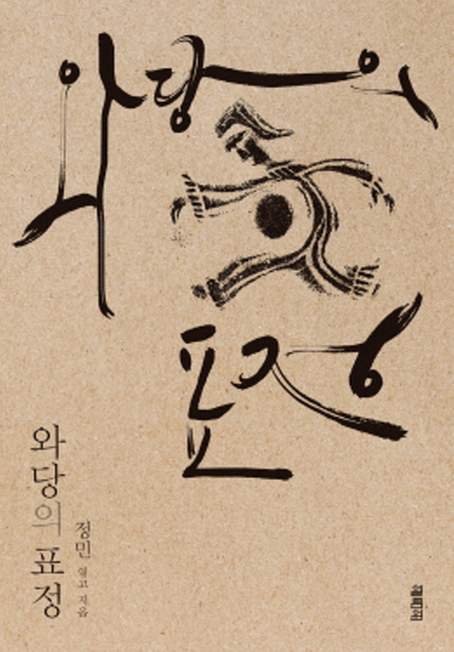 와당의
표정
와당의 표정
정민 엮고 지음
열림원